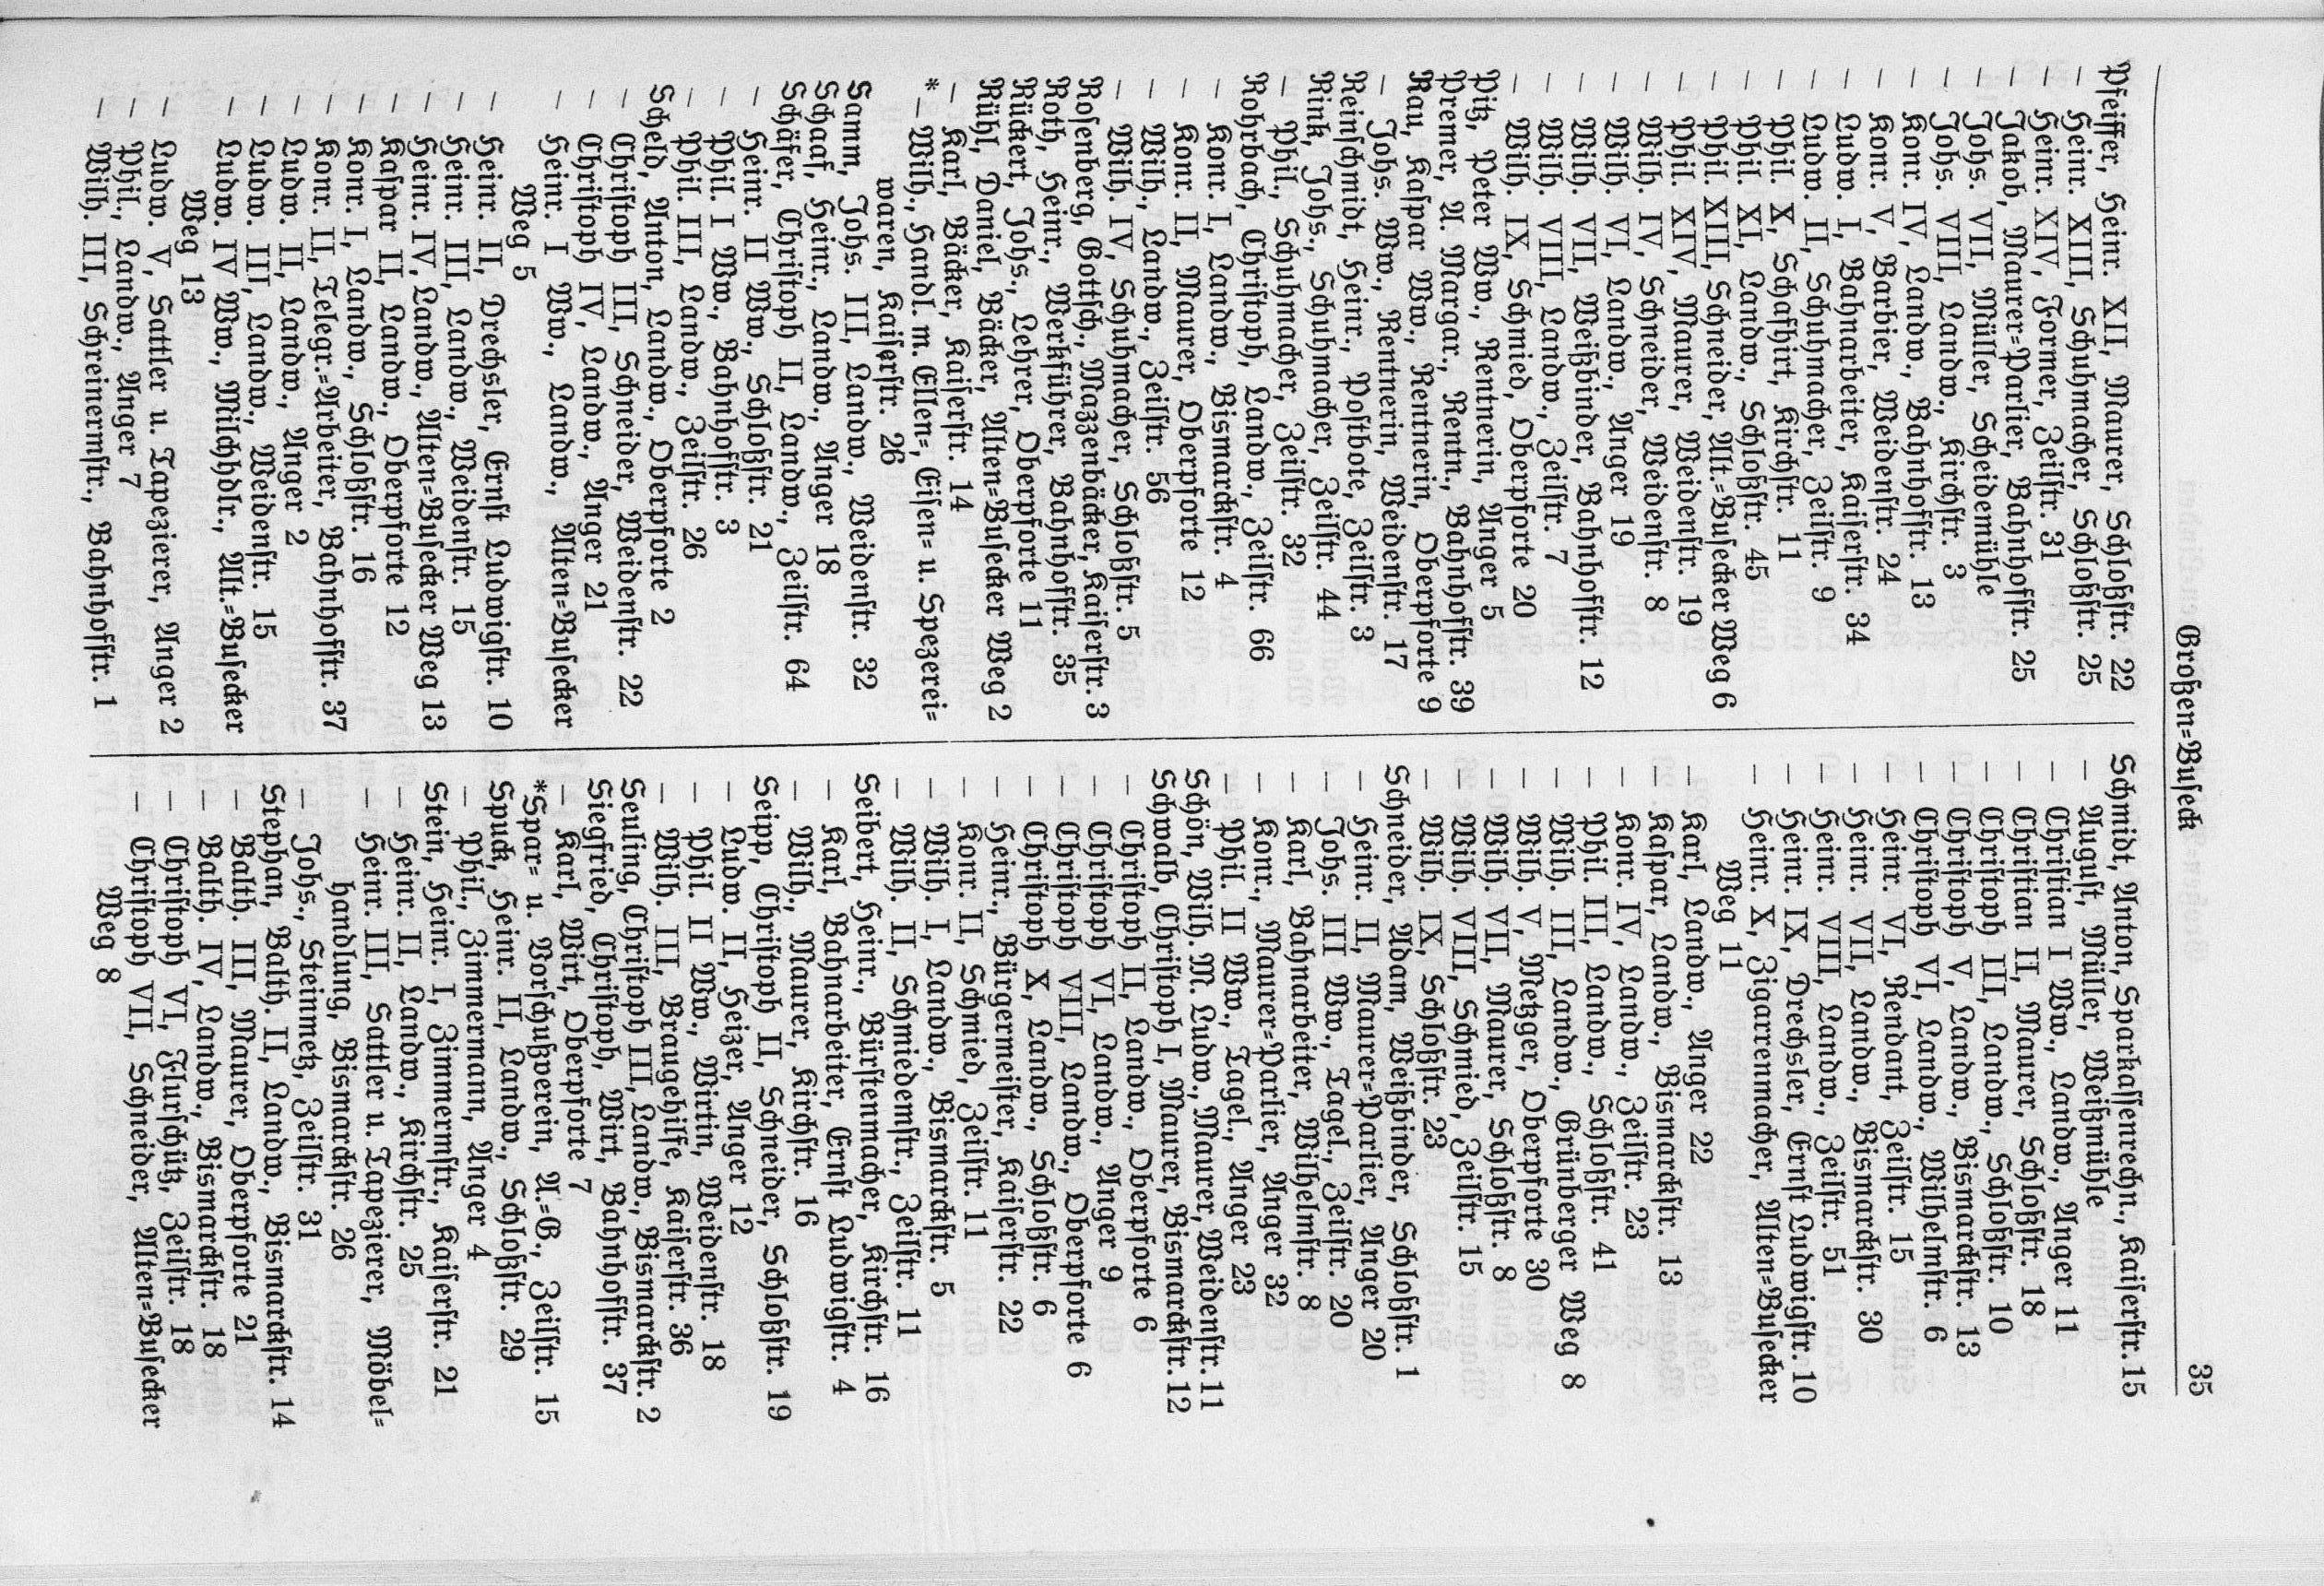 Großen=Buseck
35
Pfeiffer, Heinr. XII, Maurer, Schloßstr. 22
— Heinr. XIII, Schuhmacher, Schloßstr. 25
— Heinr. XIV, Former, Zeilstr. 31
— Jakob, Maurer=Parlier, Bahnhofstr. 25
— Johs. VII, Müller, Scheidemühle
— Johs. VIII, Landw., Kirchstr. 3
— Konr. IV, Landw., Bahnhofstr. 13
— Konr. V, Barbier, Weidenstr. 24
— Ludw. I, Bahnarbeiter, Kaiserstr. 34
— Ludw. II, Schuhmacher, Zeilstr. 9
— Phil. X, Schafhirt, Kirchstr. 11
— Phil. XI, Landw., Schloßstr. 45
— Phil. XIII, Schneider, Alt.=Busecker Weg 6
— Phil. XIV, Maurer, Weidenstr. 19
— Wilh. IV, Schneider, Weidenstr. 8
— Wilh. VI, Landw., Anger 19
— Wilh. VII, Weißbinder, Bahnhofstr. 12
— Wilh. VIII, Landw., Zeilstr. 7
— Wilh. IX, Schmied, Oberpforte 20
Pitz, Peter Ww., Rentnerin, Anger 5
Premer, A. Margar., Rentn., Bahnhofstr. 39
Rau, Kaspar Ww., Rentnerin, Oberpforte 9
— Johs. Ww., Rentnerin, Weidenstr. 17
Reinschmidt, Heinr., Postbote, Zeilstr. 3
Rink, Johs., Schuhmacher, Zeilstr. 44
— Phil., Schuhmacher, Zeilstr. 32
Rohrbach, Christoph, Landw., Zeilstr. 66
— Konr. I, Landw., Bismarckstr. 4
— Konr. II, Maurer, Oberpforte 12
— Wilh., Landw., Zeilstr. 56
— Wilh. IV, Schuhmacher, Schloßstr. 5
Rosenberg, Gottsch., Mazzenbäcker, Kaiserstr. 3
Roth, Heinr., Werkführer, Bahnhofstr. 35
Rückert, Johs., Lehrer, Oberpforte 11
Rühl, Daniel, Bäcker, Alten=Busecker Weg 2
— Karl, Bäcker, Kaiserstr. 14
*— Wilh., Handl. m. Ellen=, Eisen= u. Spezerei=
waren, Kaiserstr. 26
Samm, Johs. III, Landw., Weidenstr. 32
Schaaf, Heinr., Landw., Anger 18
Schäfer, Christoph II, Landw., Zeilstr. 64
— Heinr. II Ww., Schloßstr. 21
— Phil. I Ww., Bahnhofstr. 3
— Phil. III, Landw., Zeilstr. 26
Scheld, Anton, Landw., Oberpforte 2
— Christoph III, Schneider, Weidenstr. 22
— Christoph IV, Landw., Anger 21
— Heinr. I Ww., Landw., Alten=Busecker
Weg 5
— Heinr. II, Drechsler, Ernst Ludwigstr. 10
— Heinr. III, Landw., Weidenstr. 15
— Heinr. IV, Landw., Alten=Busecker Weg 13
— Kaspar II, Landw., Oberpforte 12
— Konr. I, Landw., Schloßstr. 16
— Konr. II, Telegr.=Arbeiter, Bahnhofstr. 37
— Ludw. II, Landw., Anger 2
— Ludw. III, Landw., Weidenstr. 15
— Ludw. IV Ww., Milchhdlr., Alt.=Busecker
Weg 13
— Ludw. V, Sattler u. Tapezierer, Anger 2
— Phil., Landw., Anger 7
— Wilh. III, Schreinermstr., Bahnhofstr. 1
Schmidt, Anton, Sparkassenrechn., Kaiserstr. 15
— August, Müller, Weißmühle
— Christian I Ww., Landw., Anger 11
— Christian II, Maurer, Schloßstr. 18
— Christoph III, Landw., Schloßstr. 10
— Christoph V, Landw., Bismarckstr. 13
— Christoph VI, Landw., Wilhelmstr. 6
— Heinr. VI, Rendant, Zeilstr. 15
— Heinr. VII, Landw., Bismarckstr. 30
— Heinr. VIII, Landw., Zeilstr. 51
— Heinr. IX, Drechsler, Ernst Ludwigstr. 10
— Heinr. X, Zigarrenmacher, Alten=Busecker
Weg 11
— Karl, Landw., Anger 22
— Kaspar, Landw., Bismarckstr. 13
— Konr. IV, Landw., Zeilstr. 23
— Phil. III, Landw., Schloßstr. 41
— Wilh. III, Landw., Grünberger Weg 8
— Wilh. V, Metzger, Oberpforte 30
— Wilh. VII, Maurer, Schloßstr. 8
— Wilh. VIII, Schmied, Zeilstr. 15
— Wilh. IX, Schloßstr. 23
Schneider, Adam, Weißbinder, Schloßstr. 1
— Heinr. II, Maurer=Parlier, Anger 20
— Johs. III Ww., Tagel., Zeilstr. 20
— Karl, Bahnarbeiter, Wilhelmstr. 8
— Konr., Maurer=Parlier, Anger 32
— Phil. II Ww., Tagel., Anger 23
Schön, Wilh. M. Ludw., Maurer, Weidenstr. 11
Schwalb, Christoph I, Maurer, Bismarckstr. 12
— Christoph II, Landw., Oberpforte 6
— Christoph VI, Landw., Anger 9
— Christoph VIII, Landw., Oberpforte 6
— Christoph X, Landw., Schloßstr. 6
— Heinr., Bürgermeister, Kaiserstr. 22
— Konr. II, Schmied, Zeilstr. 11
— Wilh. I, Landw., Bismarckstr. 5
— Wilh. II, Schmiedemstr., Zeilstr. 11
Seibert, Heinr., Bürstenmacher, Kirchstr. 16
— Karl, Bahnarbeiter, Ernst Ludwigstr. 4
— Wilh., Maurer, Kirchstr. 16
Seipp, Christoph II, Schneider, Schloßstr. 19
— Ludw. II, Heizer, Anger 12
— Phil. II Ww., Wirtin, Weidenstr. 18
— Wilh. III, Braugehilfe, Kaiserstr. 36
Seuling, Christoph III, Landw., Bismarckstr. 2
Siegfried, Christoph, Wirt, Bahnhofstr. 37
— Karl, Wirt, Oberpforte 7
*Spar= u. Vorschußverein, A.=G., Zeilstr. 15
Spuck, Heinr. II, Landw., Schloßstr. 29
— Phil., Zimmermann, Anger 4
Stein, Heinr. I, Zimmermstr., Kaiserstr. 21
— Heinr. II, Landw., Kirchstr. 25
— Heinr. III, Sattler u. Tapezierer, Möbel=
handlung, Bismarckstr. 26
— Johs., Steinmetz, Zeilstr. 31
Stephan, Balth. II, Landw., Bismarckstr. 14
— Balth. III, Maurer, Oberpforte 21
— Balth. IV, Landw., Bismarckstr. 18
— Christoph VI, Flurschütz, Zeilstr. 18
— Christoph VII, Schneider, Alten=Busecker
Weg 8